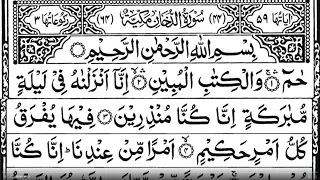 اٰیاتها ۵۹ (۴۴) سُوْرَةُ الدُّخَانِ مَكِّیَّةٌ (۶۴) رکوعاتها ۳
بِسْمِ اللّٰهِ الرَّحْمٰنِ الرَّحِیْمِ
حٰمٓ ۚ۝۱ وَ الْكِتٰبِ الْمُبِیْنِ ۝۲ اِنَّاۤ اَنْزَلْنٰهُ فِیْ لَیْلَةٍ
مُّبٰرَكَةٍ اِنَّا كُنَّا مُنْذِرِیْنَ ۝۳ فِیْهَا یُفْرَقُ
كُلُّ اَمْرٍ حَكِیْمٍ ۝۴ اَمْرًا مِّنْ عِنْدِنَا ؕ اِنَّا كُنَّا